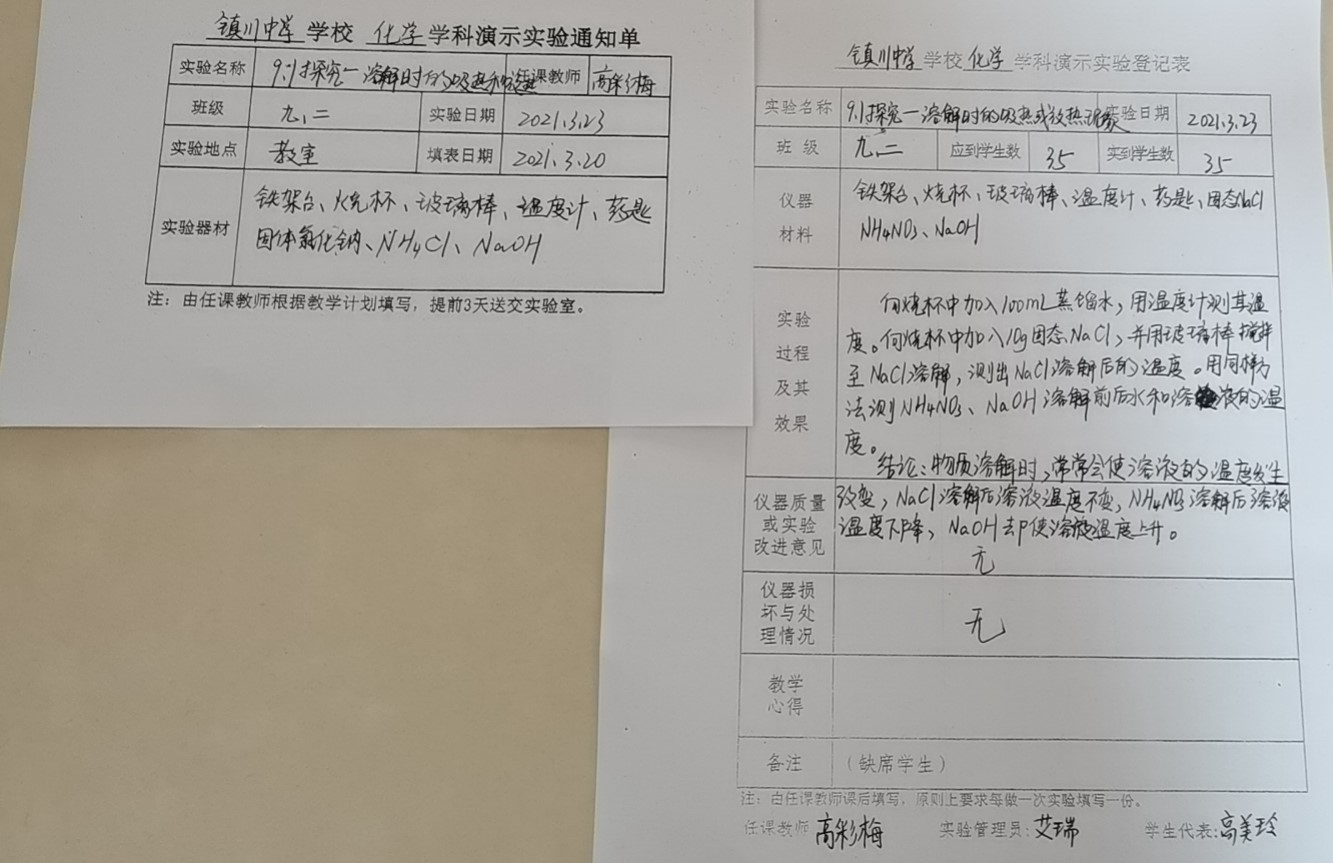 镇川中学 学校 化学 学科演示实验通知单
实验名称 9.1探究一溶解时的吸热和 任课教师 高彩梅
班级 九、二 实验日期 2021.3.23
实验地点 教室 填表日期 2021.3.20
实验器材 铁架台、烧杯、玻璃棒、温度计、药匙
固体氯化钠、NH4Cl、NaOH
注：由任课教师根据教学计划填写，提前3天送交实验室。
镇川中学 学校 化学 学科演示实验登记表
实验名称 9.1探究一溶解时的吸热或放热现象 实验日期 2021.3.23
班 级 九、二 应到学生数 35 实到学生数 35
仪器 铁架台、烧杯、玻璃棒、温度计、药匙、固态NaCl
材料 NH4NO3、NaOH
实验
过程
及其
效果
向烧杯中加入100mL蒸馏水，用温度计测其温
度。向烧杯中加入10g固态NaCl，并用玻璃棒搅拌
至NaCl溶解，测出NaCl溶解后的温度。用同样方
法测NH4NO3、NaOH溶解前后水和溶液的温
度。
结论：物质溶解时，常常会使溶液的温度发生
改变，NaCl溶解后溶液温度不变，NH4NO3溶解后溶液
温度下降，NaOH却使溶液温度上升。
仪器质量
或实验
改进意见
无
仪器损
坏与处
理情况
无
教学
心得
备注 （缺席学生）
注：由任课教师课后填写，原则上要求每做一次实验填写一份。
任课教师 高彩梅 实验管理员：艾瑞 学生代表：高美玲